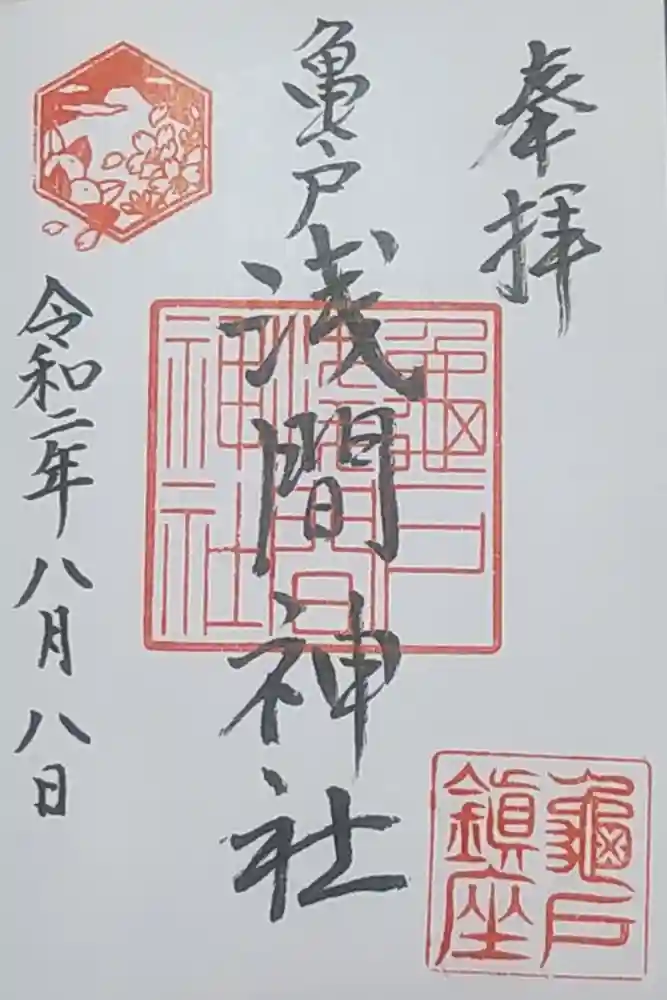 奉拝
亀戸
浅間神社
令和二年八月八日
亀戸
浅間
神社
亀戸
鎮座